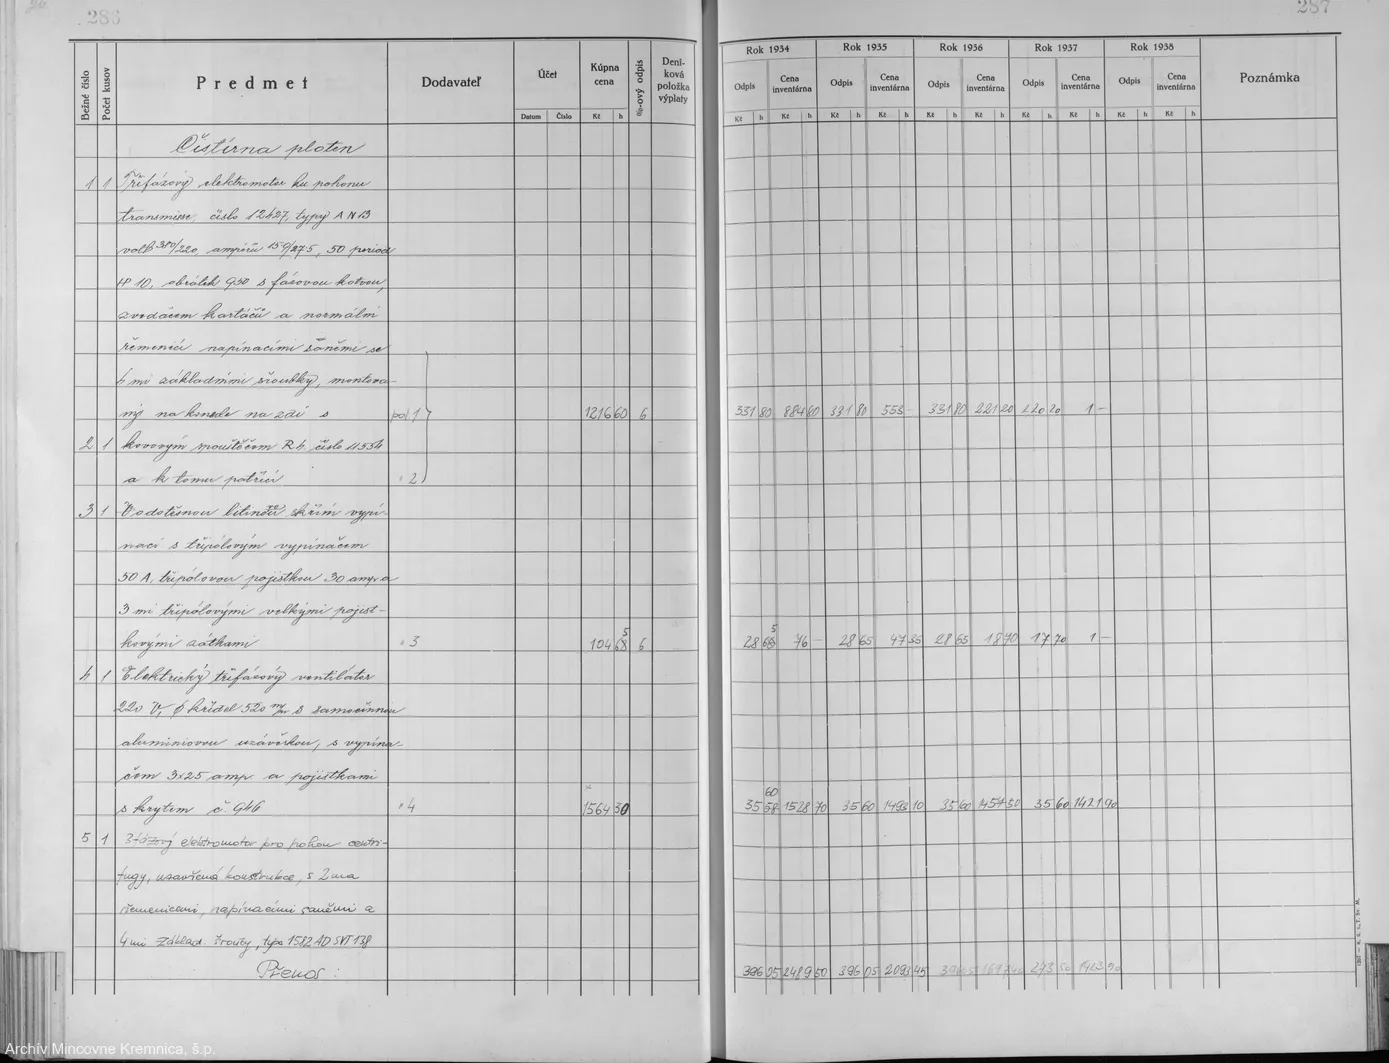 286
287
Bežné číslo
Počet kusov
Predmet
Dodavateľ
Účet
Datum Číslo
Kúpna cena
Kč h
%-ový odpis
Deníková položka výplaty
Rok 1934 Rok 1935 Rok 1936 Rok 1937 Rok 1938
Odpis Cena inventárna Odpis Cena inventárna Odpis Cena inventárna Odpis Cena inventárna Odpis Cena inventárna
Kč h Kč h Kč h Kč h Kč h Kč h Kč h Kč h Kč h Kč h
Poznámka
Čistírna ploten
1 1 Třífázový elektromotor ku pohonu
transmisse, číslo 12427, typy AN13
volt 380/220, ampérů 159/275, 50 period
HP 10, obrátek 930 s fázovou kotvou,
zvedáčem kartáčů a normální
řemenicí napínacími sáněmi se
4 mi základními šroubky, montova-
ný na konsole na zdi s pol. 1 1216 60 6 331 80 884 80 331 80 553 – 331 80 221 20 220 20 1 –
2 1 kovovým spouštěčem Rh číslo 11534
a k tomu patřící " 2
3 1 Vodotěsnou litinovou skříní vypí-
nací s třípólovým vypínačem
50 A, třípólovou pojistkou 30 amp. a
3 mi třípólovými velkými pojist-
kovými zátkami " 3 104 65 6 28 65 76 – 28 65 47 35 28 65 18 70 17 70 1 –
4 1 Elektrický třífázový ventilátor
220 V, ϕ křídel 520 m/m s samočinnou
aluminiovou uzávěrkou, s vypína-
čem 3x25 amp. a pojistkami
s krytem č. 946 " 4 1564 30 35 60 1528 70 35 60 1493 10 35 60 1457 50 35 60 1421 90
5 1 3fázový elektromotor pro pohon centri-
fugy, uzavřená konstrukce, s 2 ma
řemenicemi, napínacími saněmi a
4 mi základ. šrouby, typ 1582 AD SVT 138
Přenos: 396 05 2489 50 396 05 2093 45 396 05 1697 40 273 50 1423 90
Archív Mincovne Kremnica, š.p.